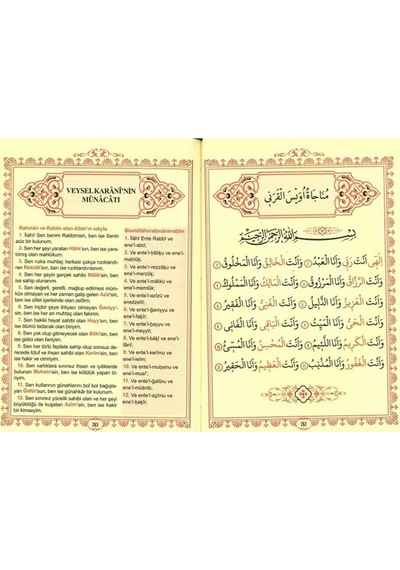 VEYSEL KARÂNÎ'NİN
MÜNÂCÂTI
Rahmân ve Rahîm olan Allah'ın adıyla
1. İlahi! Sen benim Rabbimsin, ben ise Senin
âciz bir kulunum.
2. Sen her şeyi yaratan Hâlık'sın, ben ise yara-
tılmış olan mahlûkum.
3. Sen rızka muhtaç herkesi çokça rızıklandı-
ran Rezzâk'sın, ben ise rızıklandırılanım.
4. Sen her şeyin sahibi olan Mâlik'sin, ben ise
sahip olunanım.
5. Sen değerli, şerefli, mağlup edilmesi müm-
kün olmayan ve her zaman galip gelen Azîz'sin,
ben ise zilet içerisinde olan zelîlim.
6. Sen hiçbir şeye ihtiyacı olmayan Ganiyy'-
sin, ben ise her an muhtaç olan fakirim.
7. Sen hakiki hayat sahibi olan Hayy'sın, ben
ise ölümü tadacak olan ölüyüm.
8. Sen yok olup gitmeyecek olan Bâkî'sin, ben
ise gidici olan faniyim.
9. Sen her türlü fazilete sahip olup sonsuz de-
recede lütuf ve ihsan sahibi olan Kerîm'sin, ben
ise hakir ve cimriyim.
10. Sen varlıklara sınırsız ihsan ve iyiliklerde
bulunan Muhsin'sin, ben ise kötülük yapan bi-
riyim.
11. Sen kullarının günahlarını bol bol bağışla-
yan Gafûr'sun, ben ise günahkârım.
12. Sen sınırsız yücelik sahibi olan ve her şeyi
büyüklüğü ile kuşatan Azîm'sin, ben ise hakir
bir kimseyim.
Bismillâhirrahmânirrahîm
1. İlâhî! Ente Rabbî ve
ene'l-abd;
2. Ve ente'l-hâliḳu ve ene'l-
mahlûḳ;
3. Ve ente'r-rezzâḳu ve
ene'l-merzûḳ;
4. Ve ente'l-mâliku ve
ene'l-memlûk;
5. Ve ente'l-azîzu ve
ene'z-zelîl;
6. Ve ente'l-ġaniyyu ve
ene'l-faḳîr;
7. Ve ente'l-ḥayyu ve
ene'l-meyyit;
8. Ve ente'l-bâḳî ve ene'l-
fânî;
9. Ve ente'l-kerîmu ve
ene'l-leîm;
10. Ve ente'l-muḥsinu ve
ene'l-musî';
11. Ve ente'l-ġafûru ve
ene'l-muznib;
12. Ve ente'l-aẓîmu ve
ene'l-ḥaḳîr;
263
مُنَاجَاةُ اُوَيْسِ الْقَرَنِى
بِسْمِ اللّٰهِ الرَّحْمٰنِ الرَّحِيمِ
اِلٰهِى اَنْتَ رَبِّى وَاَنَا الْعَبْدُ ۞ وَاَنْتَ الْخَالِقُ وَاَنَا الْمَخْلُوقُ ۞
وَاَنْتَ الرَّزَّاقُ وَاَنَا الْمَرْزُوقُ ۞ وَاَنْتَ الْمَالِكُ وَاَنَا الْمَمْلُوكُ ۞
وَاَنْتَ الْعَزِيزُ وَاَنَا الذَّلِيلُ ۞ وَاَنْتَ الْغَنِىُّ وَاَنَا الْفَقِيرُ ۞
وَاَنْتَ الْحَىُّ وَاَنَا الْمَيِّتُ ۞ وَاَنْتَ الْبَاقِى وَاَنَا الْفَانِى ۞
وَاَنْتَ الْكَرِيمُ وَاَنَا اللَّئِيمُ ۞ وَاَنْتَ الْمُحْسِنُ وَاَنَا الْمُسِىءُ ۞
وَاَنْتَ الْغَفُورُ وَاَنَا الْمُذْنِبُ ۞ وَاَنْتَ الْعَظِيمُ وَاَنَا الْحَقِيرُ ۞
262